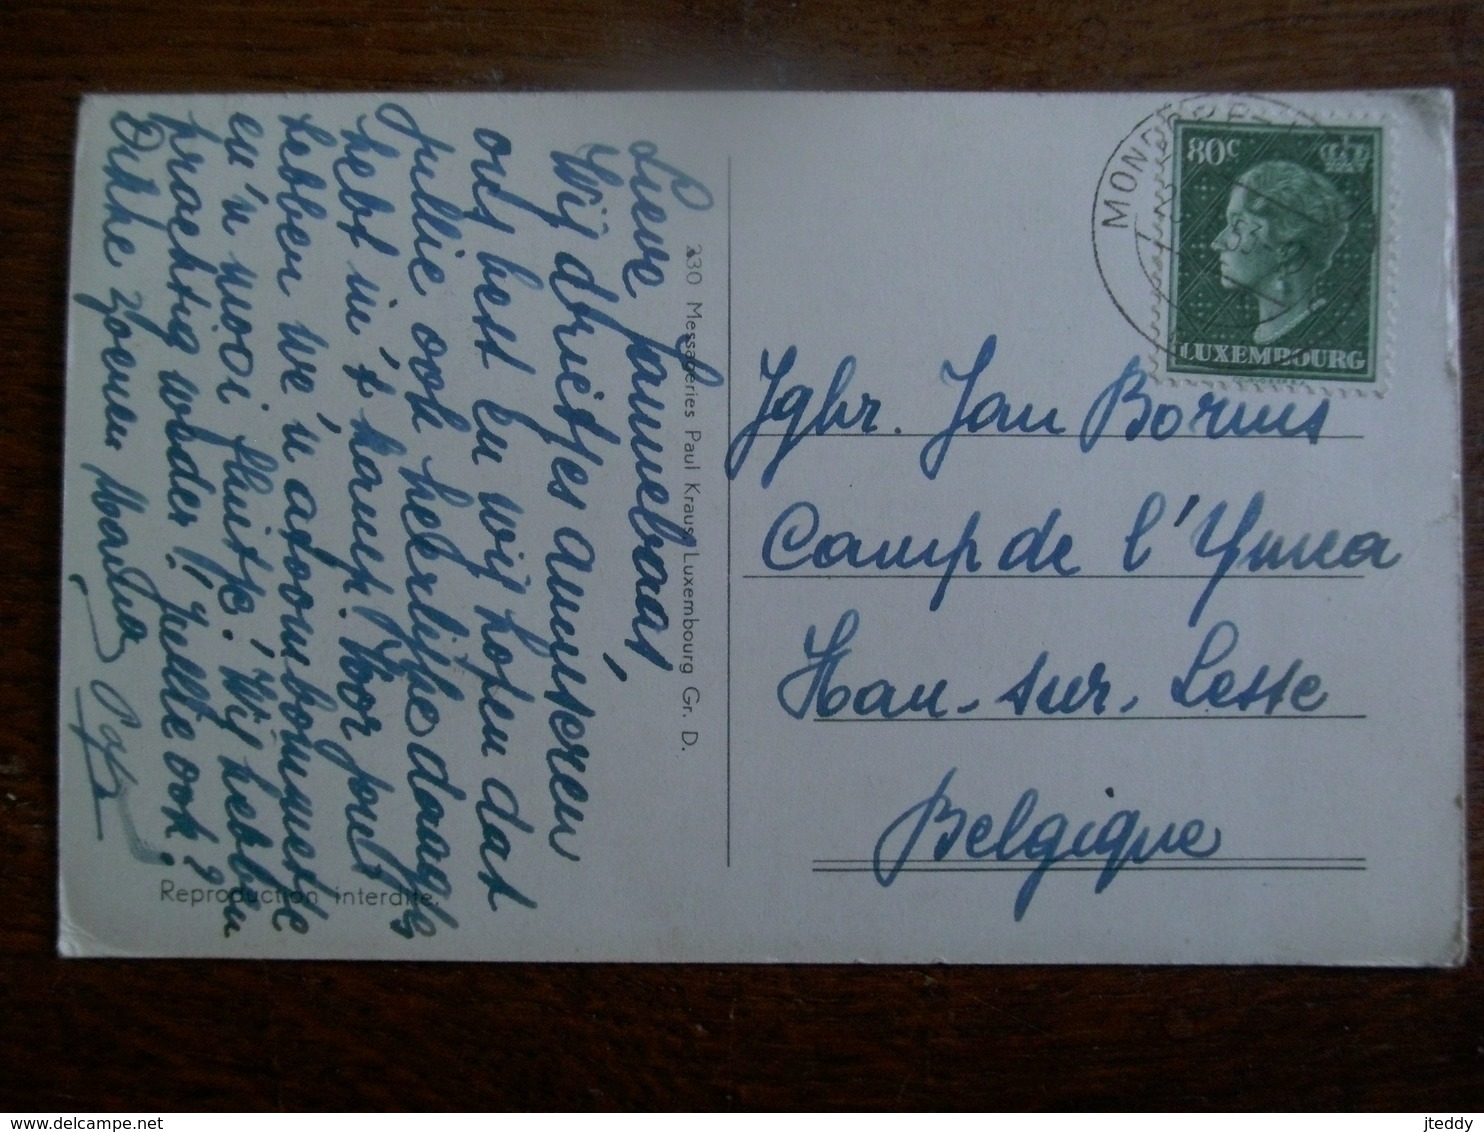 Lieve Jannebaas,
Wij drietjes amuseren
ons best en wij hopen dat
jullie ook heerlijke daagjes
hebt in 't kamp! Voor jouw
hebben we 'n atoombommeke
en 'n mooi fluitje! Wij hebben
prachtig weder! Jullie ook?
Dikke zoenen
230 Messageries Paul Kraus, Luxembourg Gr. D.
Reproduction interdite.
MONDORF
53
80c
LUXEMBOURG
Jghr. Jan Borms
Camp de l'Ymca
Han-sur-Lesse
Belgique
delcampe.net
jteddy